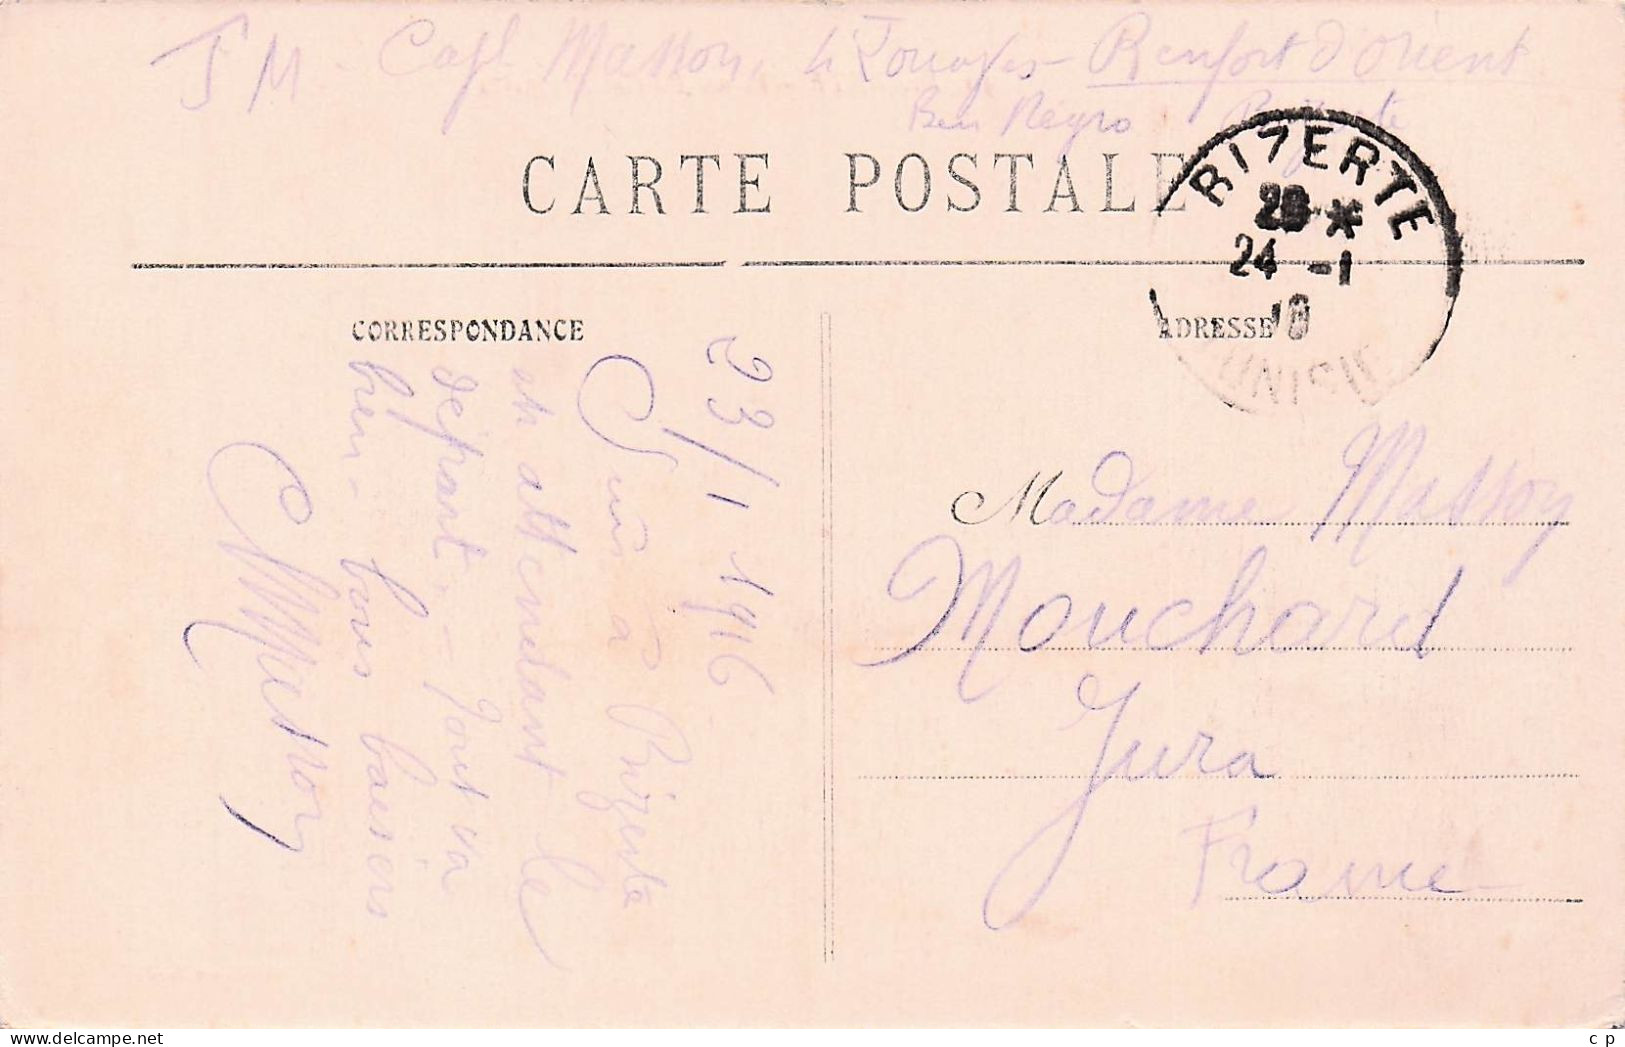 FM - Capl Masson, 4e Zouaves - Renfort d'Orient
Ben Négro Bizerte
CARTE POSTALE
BIZERTE
24 -1
TUNISIE
CORRESPONDANCE
ADRESSE
23/1 1916
Suis à Bizerte
et attendant le
départ. - Tout va
bien - bons baisers
CMasson
Madame Masson
Mouchard
Jura
France
c p